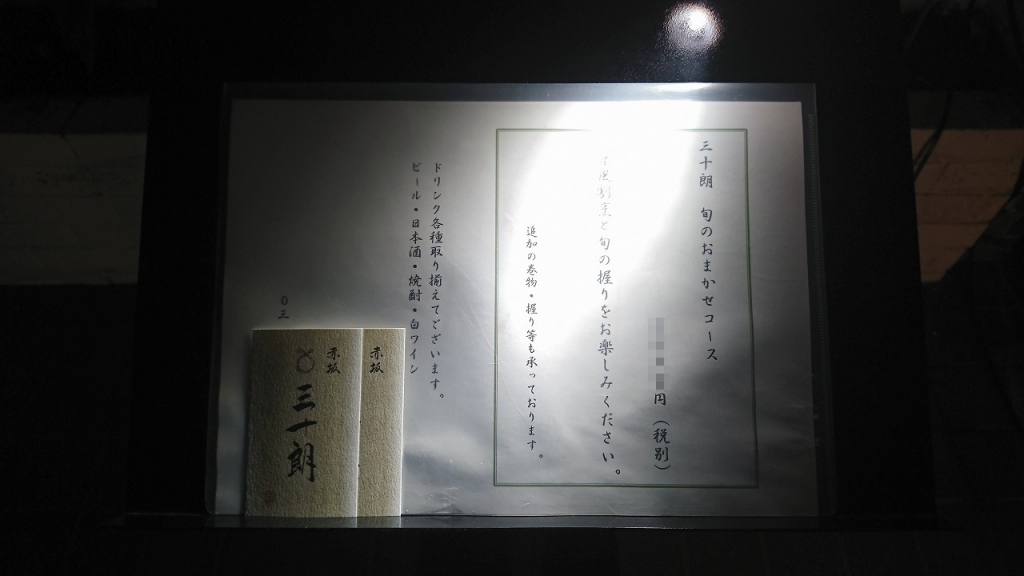 三十朗 旬のおまかせコース
円（税別）
割烹と旬の握りをお楽しみください。
追加の巻物・握り等も承っております。
ドリンク各種取り揃えてございます。
ビール・日本酒・焼酎・白ワイン
赤坂
赤坂
三十朗